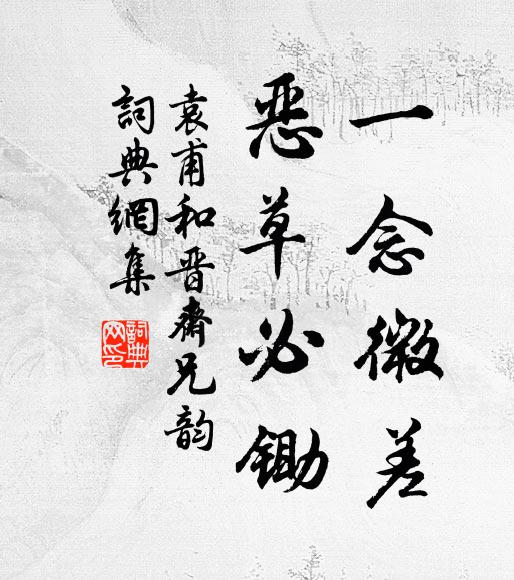 一念微差
恶草必锄
袁甫和晋齋兄韵
詞典網集
詞典
网印